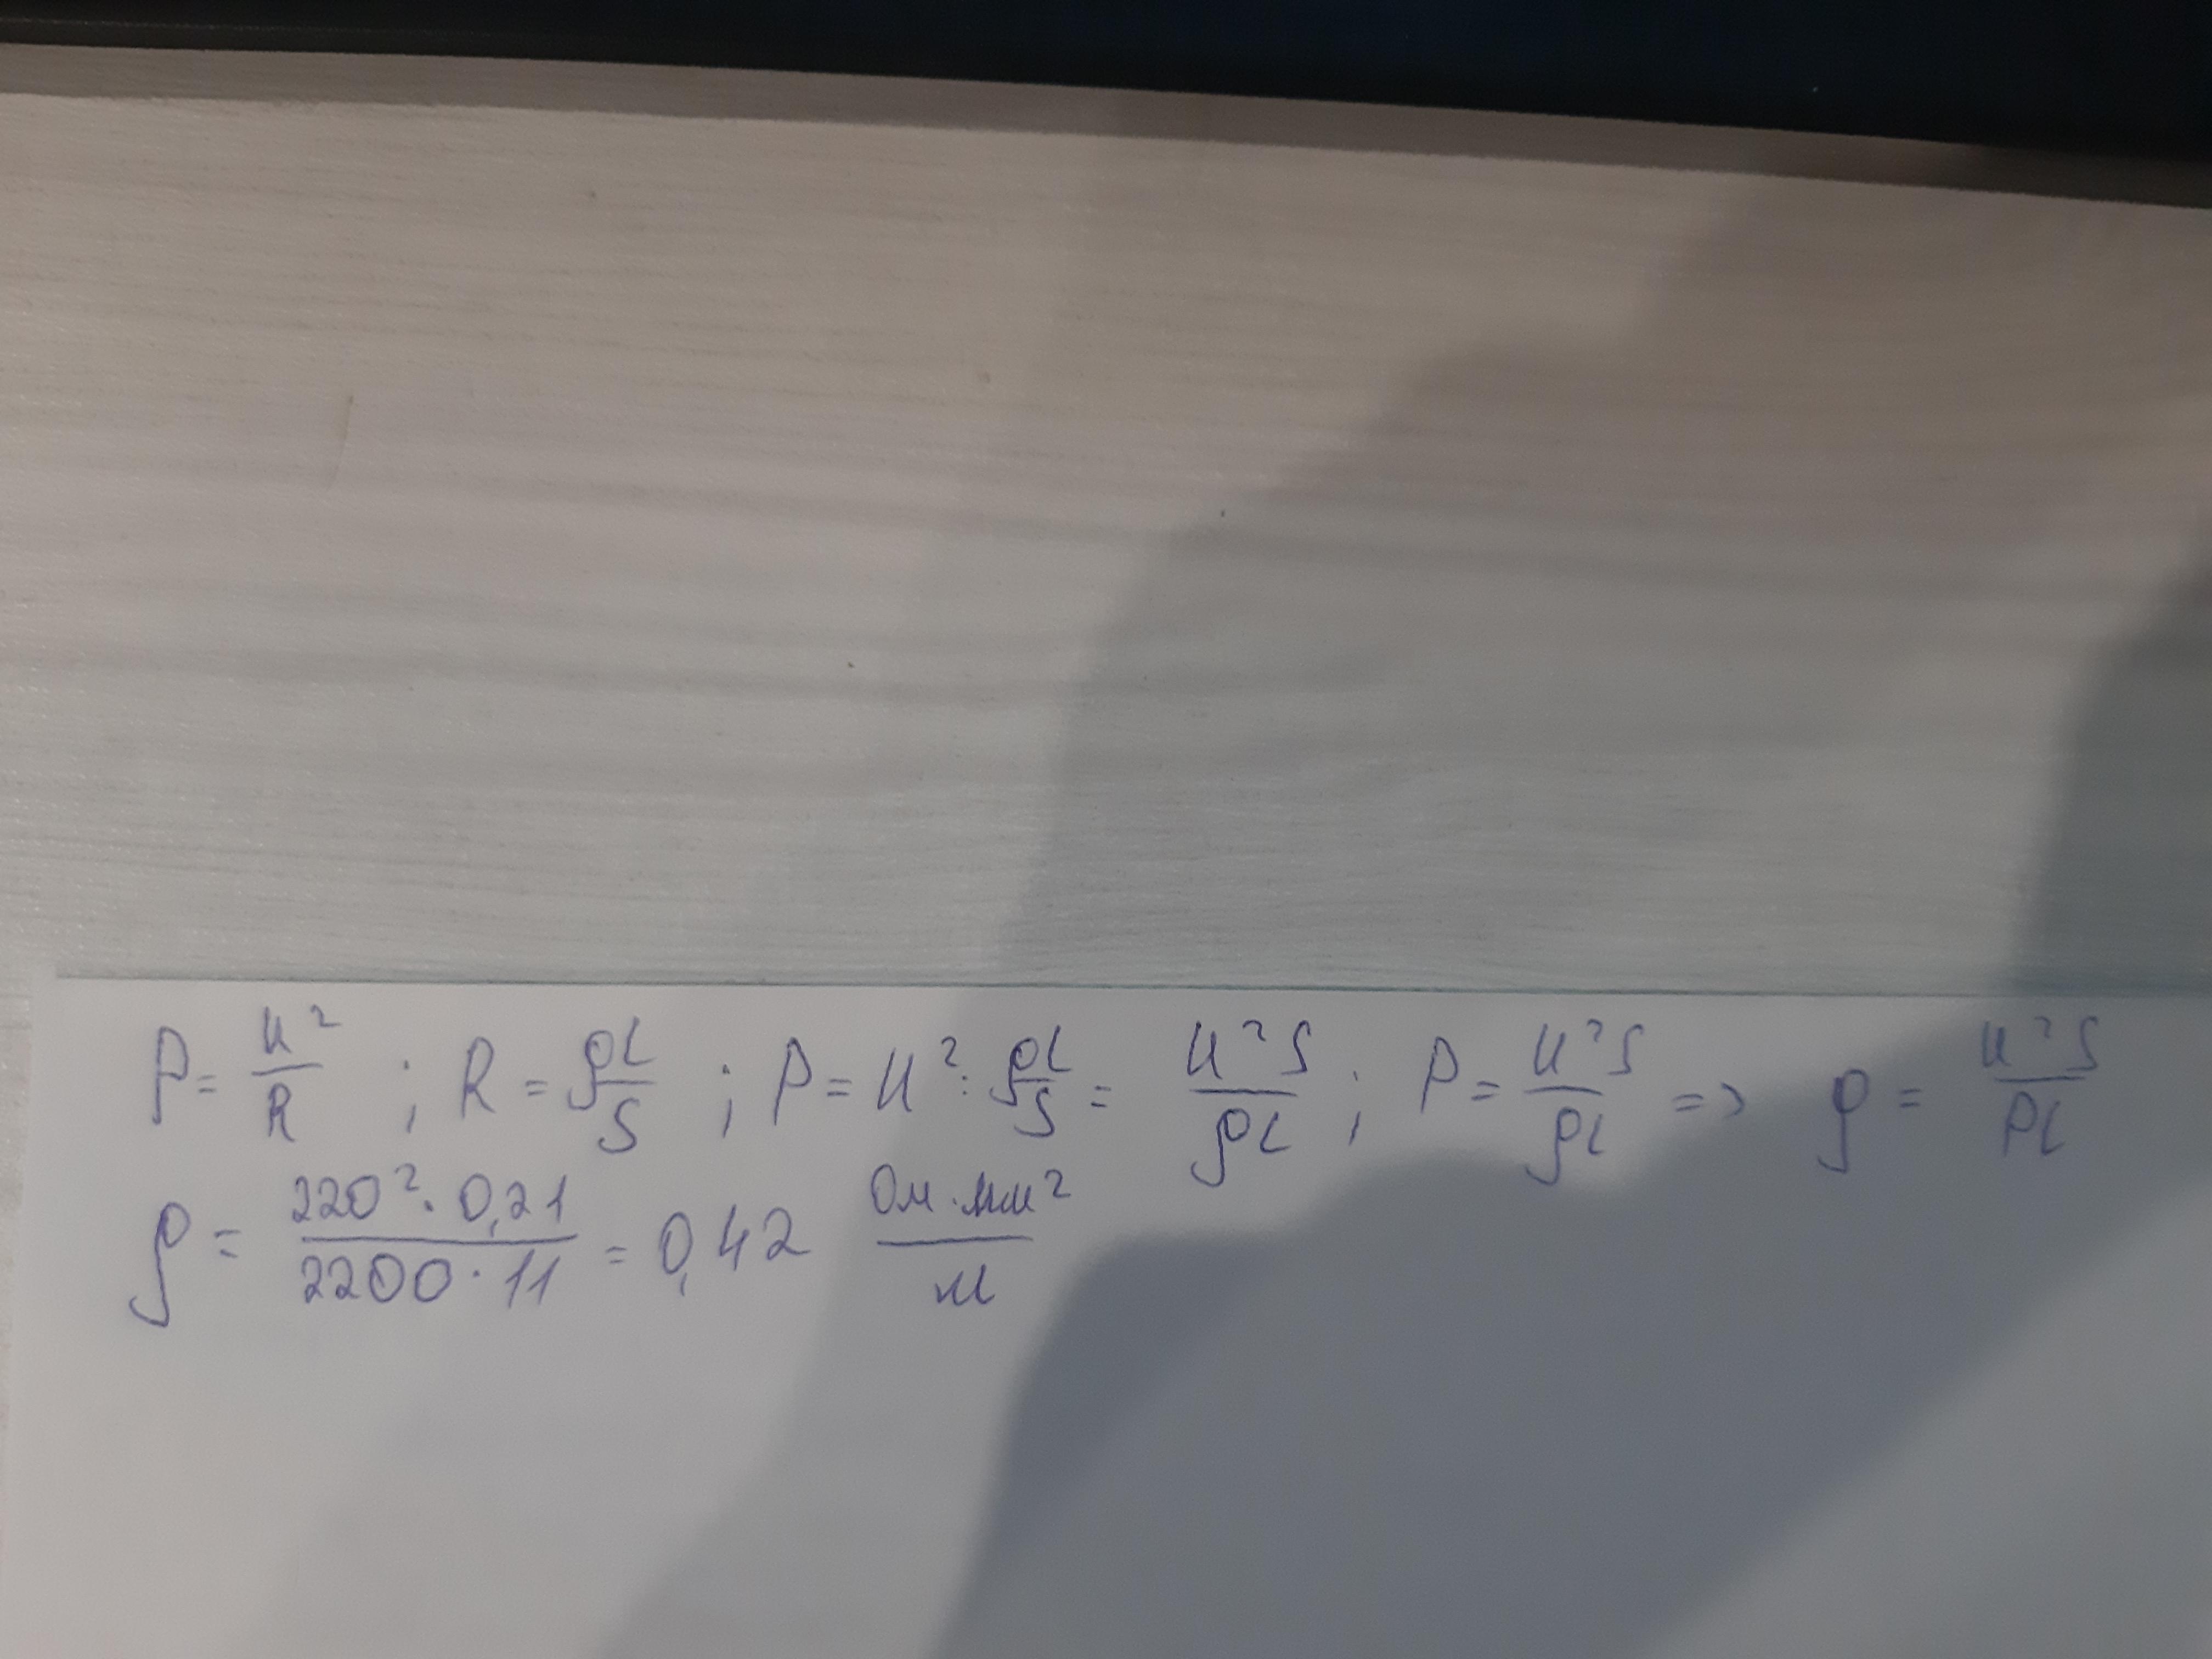 P = U²/R ; R = ρL/S ; P = U² : ρL/S = U²S/ρL ; P = U²S/ρL => ρ = U²S/PL
ρ = 220² · 0,21/2200 · 11 = 0,42 Ом·мм²/м